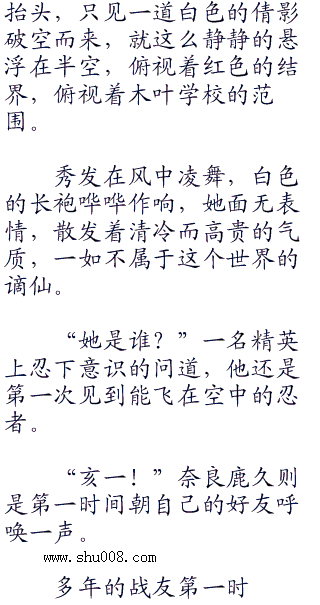 抬头，只见一道白色的倩影
破空而来，就这么静静的悬
浮在半空，俯视着红色的结
界，俯视着木叶学校的范
围。
秀发在风中凌舞，白色
的长袍哗哗作响，她面无表
情，散发着清冷而高贵的气
质，一如不属于这个世界的
谪仙。
“她是谁？”一名精英
上忍下意识的问道，他还是
第一次见到能飞在空中的忍
者。
“亥一！”奈良鹿久则
是第一时间朝自己的好友呼
唤一声。
www.shu008.com
多年的战友第一时